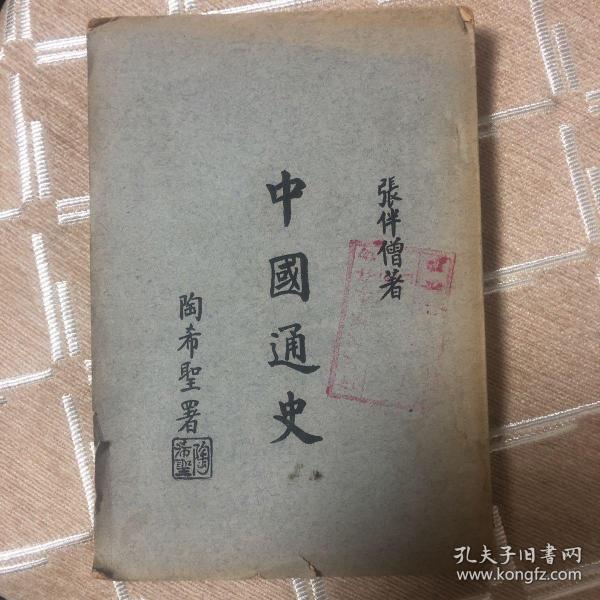 張伴僧著
中國通史
陶希聖署
陶希聖
孔夫子旧書网
www.kongfz.com